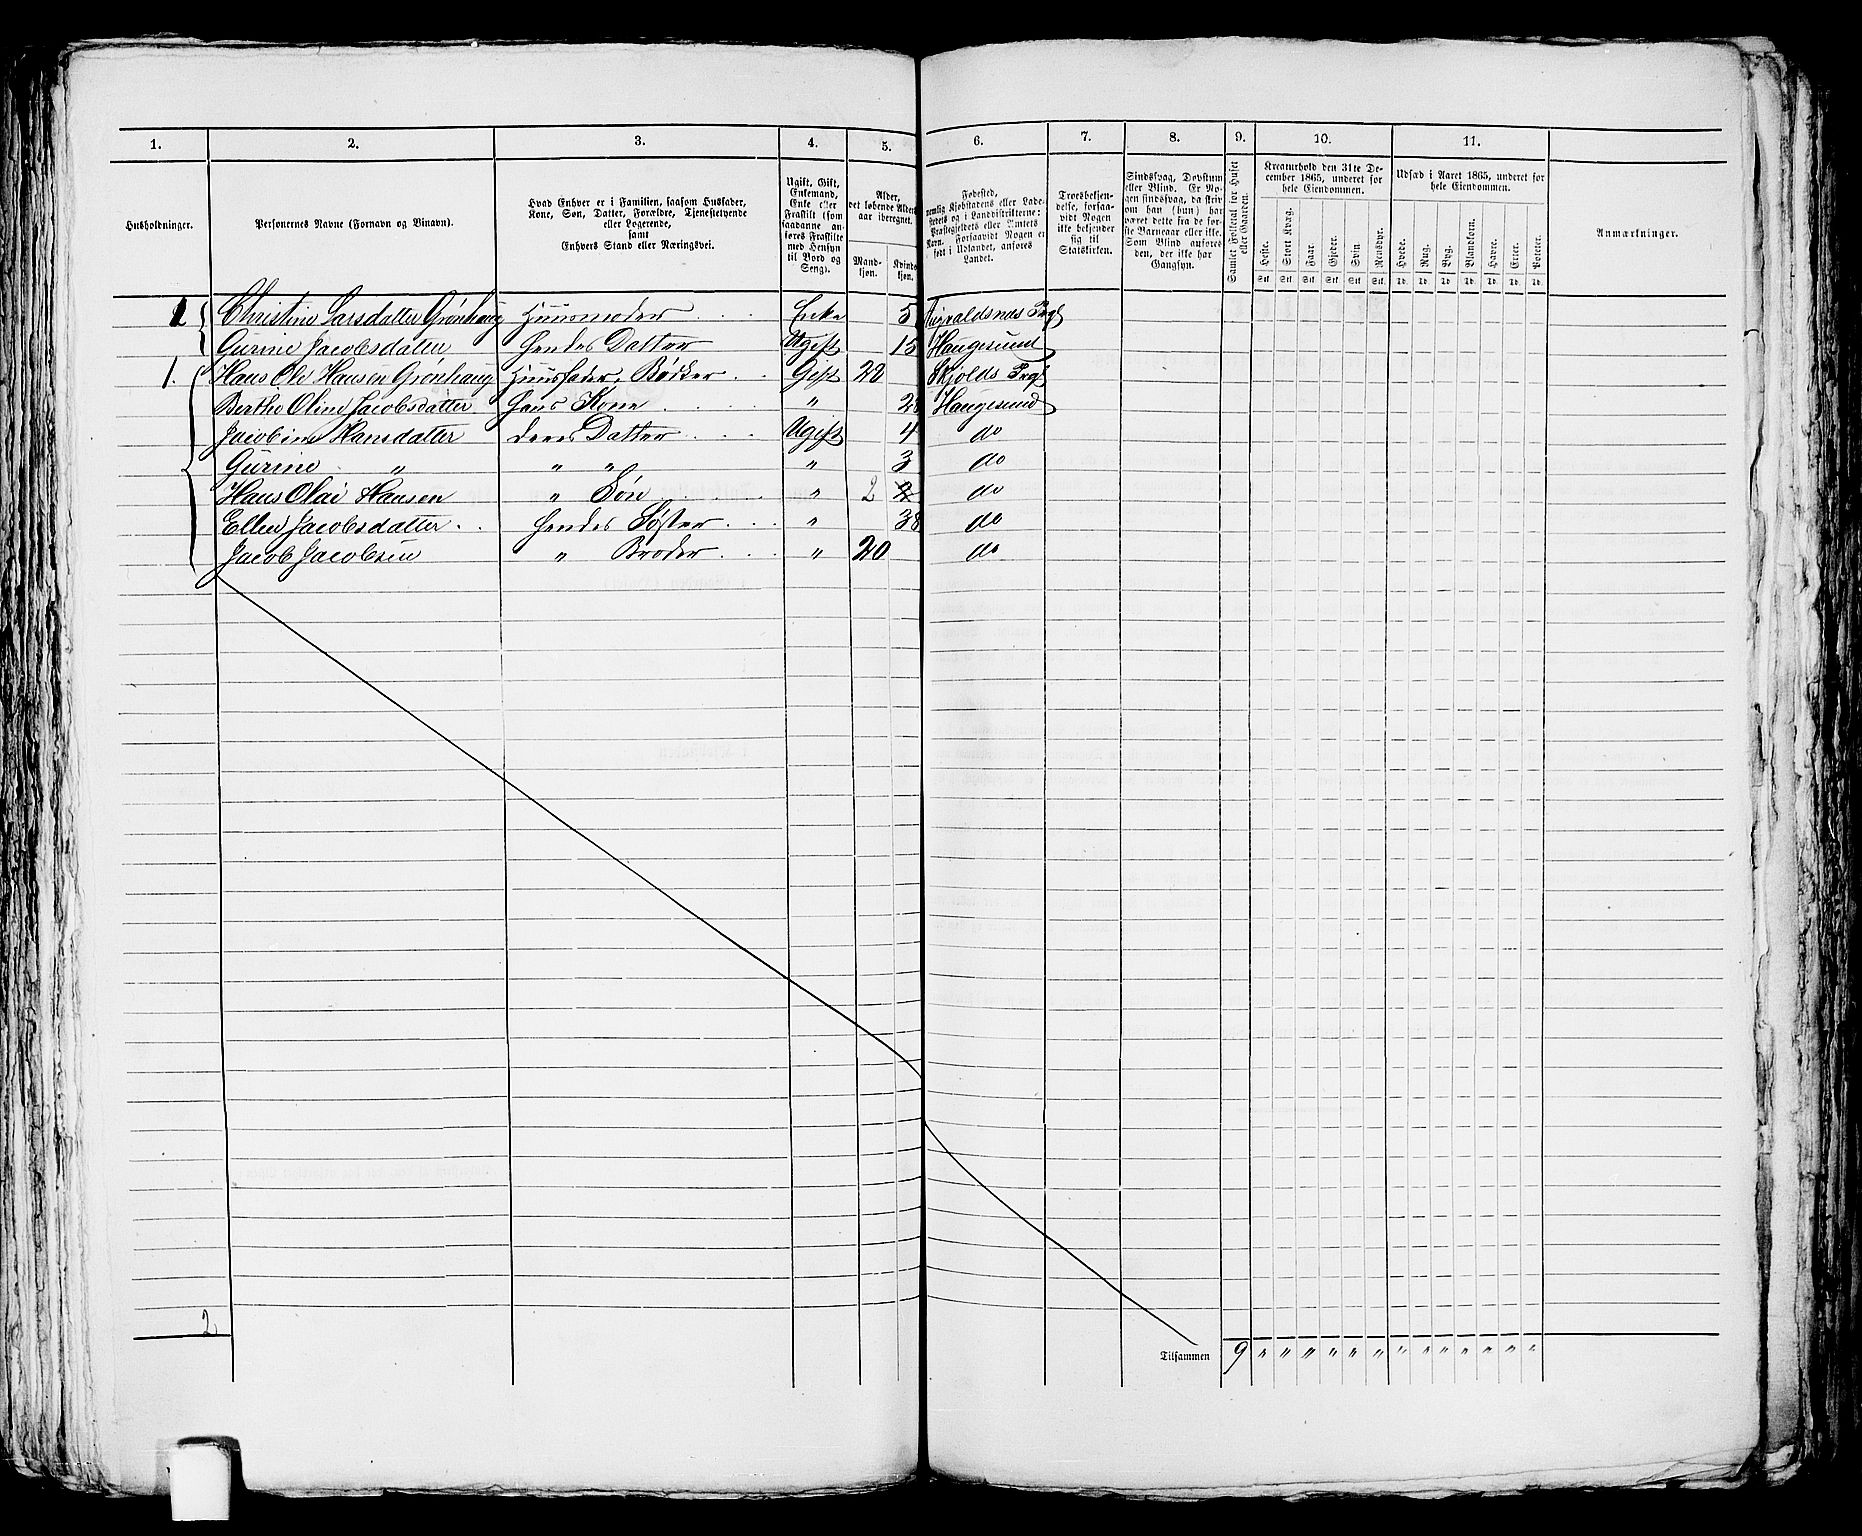 1. 2. 3. 4. 5. 6. 7. 8. 9. 10. 11.
Husholdninger.
Personernes Navne (Fornavn og Binavn).
Hvad Enhver er i Familien, saasom Husfader,
Kone, Søn, Datter, Forældre, Tjenestetyende
eller Logerende,
samt
Enhvers Stand eller Næringsvei.
Ugift, Gift,
Enkemand,
Enke eller
Fraskilt (som
saadanne an-
føres Fraskilte
med Hensyn
til Bord og
Seng).
Alder,
det løbende Alders-
aar iberegnet.
Mand-
kjøn.
Kvind-
kjøn.
Fødested,
nemlig Kjøbstadens eller Lade-
stedets og i Landdistrikterne:
Præstegjeldets eller Annexets
Navn. Forsaavidt Nogen er
født i Udlandet, anføres
Landet.
Troesbekjen-
delse, forsaa-
vidt Nogen
ikke bekjender
sig til
Statskirken.
Sindssvag, Døvstum
eller Blind. Er No-
gen sindssvag, da skriv
om han (hun) har
været dette fra de før-
ste Barneaar eller ikke.
Som Blind anføres
den, der ikke har
Gangsyn.
Samlet Folketal for Huset
eller Gaarden.
Kreaturhold den 31te De-
cember 1865, underet for
hele Eiendommen.
Heste. Stort Kvæg. Faar. Gjeder. Svin. Rensdyr.
Stk. Stk. Stk. Stk. Stk. Stk.
Udsæd i Aaret 1865, underet for
hele Eiendommen.
Hvede. Rug. Byg. Blandkorn. Havre. Erter. Poteter.
Td. Td. Td. Td. Td. Td. Td.
Anmærkninger.
1 Christine Larsdatter Grønhaug Huusmoder Enke 5 Prgl
Gurine Jacobsdatter hendes Datter Ugift 15 Haugesund
1. Hans Ole Hansen Grønhaug Huusfader, Bødker Gift 28 Skjolds Prgl
Berthe Oline Jacobsdatter hans Kone " 28 Haugesund
Jacobine Hansdatter deres Datter Ugift 4 do
Gurine " " " " 3 do
Hans Olai Hansen " Søn " 2 2 do
Ellen Jacobsdatter hendes Søster " 38 do
Jacob Jacobsen " Broder " 20 do
2
Tilsammen 9 " " " " " " " " " " " "